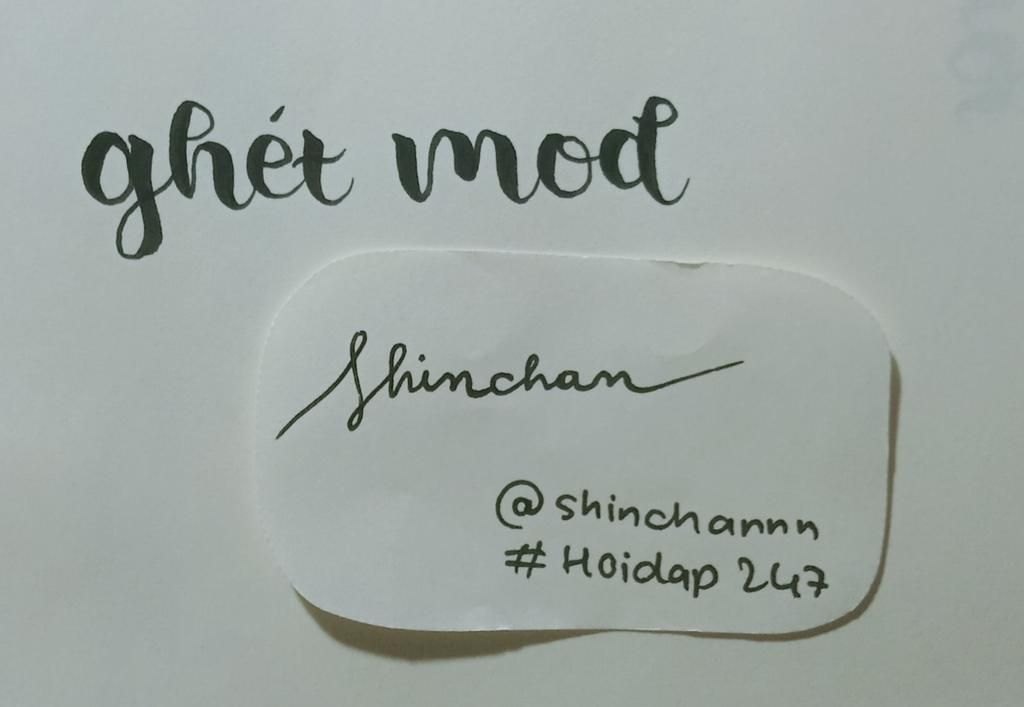 ghét mod
Shinchan
@shinchannn
#Hoidap 247